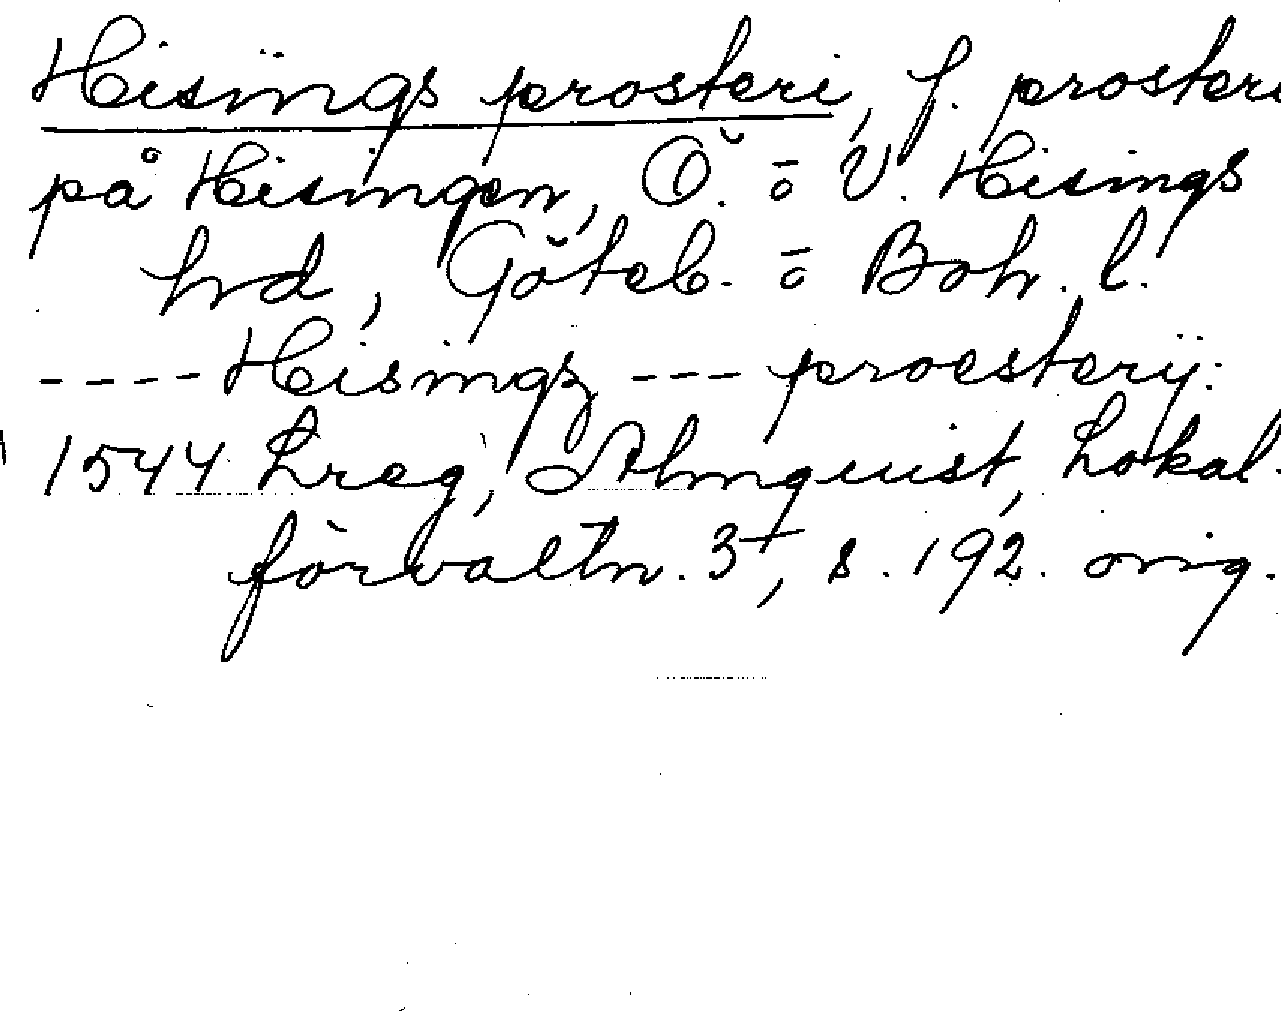 Hisings prosteri, f. prosteri
på Hisingen, Ö. o V. Hisings
hrd, Göteb. o Boh. l.
---- Hisingz --- proesterij:
1544 Lreg, Almquist, Lokal-
förvaltn. 3, s. 192. orig.